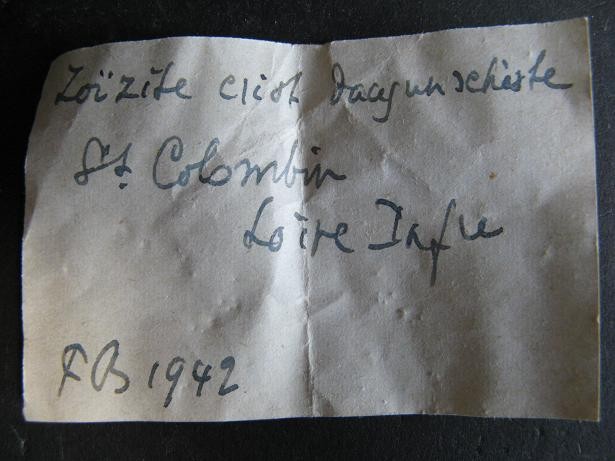 Zoïzite crist dacgun schiste
St Colombin
Loire Infre
FB 1942